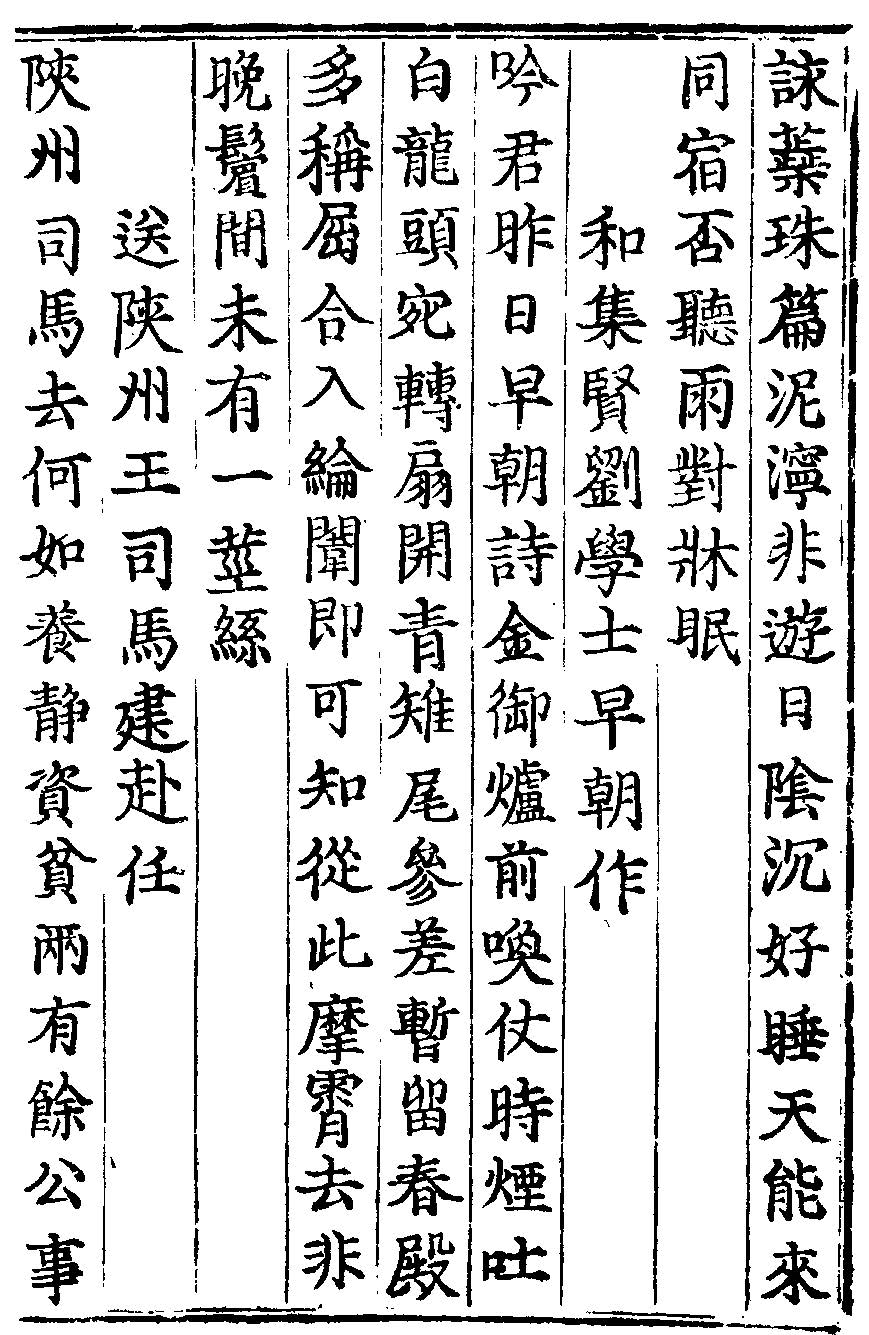 詠蘂珠篇泥濘非遊日陰沉好睡天能來
同宿否聽雨對牀眠
和集賢劉學士早朝作
吟君昨日早朝詩金御爐前喚仗時煙吐
白龍頭宛轉扇開青雉尾參差暫留春殿
多稱屈合入綸闈即可知從此摩霄去非
晚鬢間未有一莖絲
送陝州王司馬建赴任
陝州司馬去何如養静資貧兩有餘公事